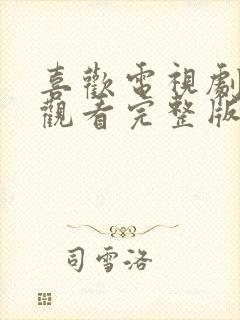 喜歡電視劇
觀看完整版
司雪洛